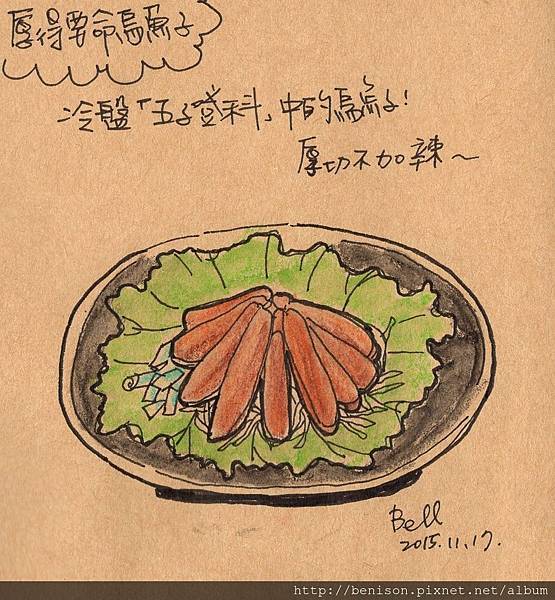 厚得要命烏魚子
冷盤「五子登科」中的烏魚子！
厚切不加辣～
Bell
2015.11.17.
http://benison.pixnet.net/album